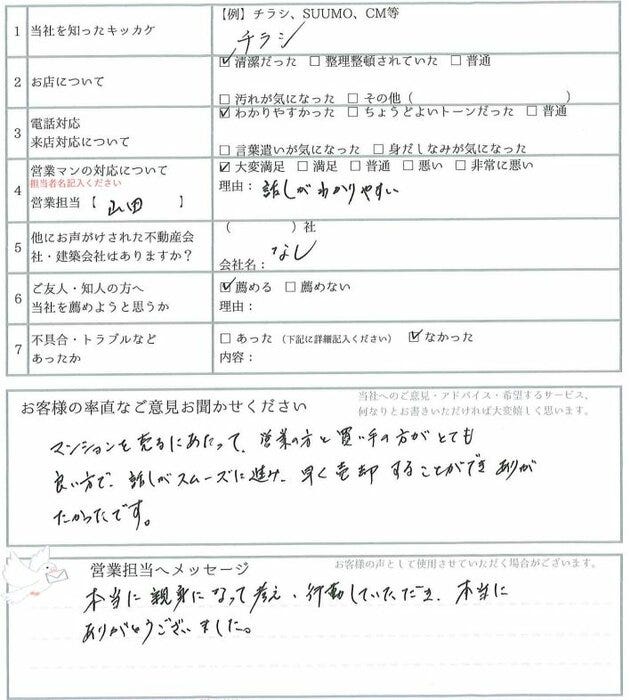 【例】チラシ、SUUMO、CM等
1 当社を知ったキッカケ
チラシ
2 お店について
☑ 清潔だった □ 整理整頓されていた □ 普通
□ 汚れが気になった □ その他（ ）
3 電話対応
来店対応について
☑ わかりやすかった □ ちょうどよいトーンだった □ 普通
□ 言葉遣いが気になった □ 身だしなみが気になった
4 営業マンの対応について
担当者名記入ください
営業担当【 山田 】
☑ 大変満足 □ 満足 □ 普通 □ 悪い □ 非常に悪い
理由： 話しがわかりやすい
5 他にお声がけされた不動産会
社・建築会社はありますか？
（ ）社
なし
会社名：
6 ご友人・知人の方へ
当社を薦めようと思うか
☑ 薦める □ 薦めない
理由：
7 不具合・トラブルなど
あったか
□ あった （下記に詳細記入ください） ☑ なかった
内容：
お客様の率直なご意見お聞かせください
当社へのご意見・アドバイス・希望するサービス、
何なりとお書きいただければ大変嬉しく思います。
マンションを売るにあたって、営業の方と買い手の方がとても
良い方で、話しがスムーズに進み、早く売却することができありが
たかったです。
営業担当へメッセージ
お客様の声として使用させていただく場合がございます。
本当に親身になって考え、行動していただき、本当に
ありがとうございました。